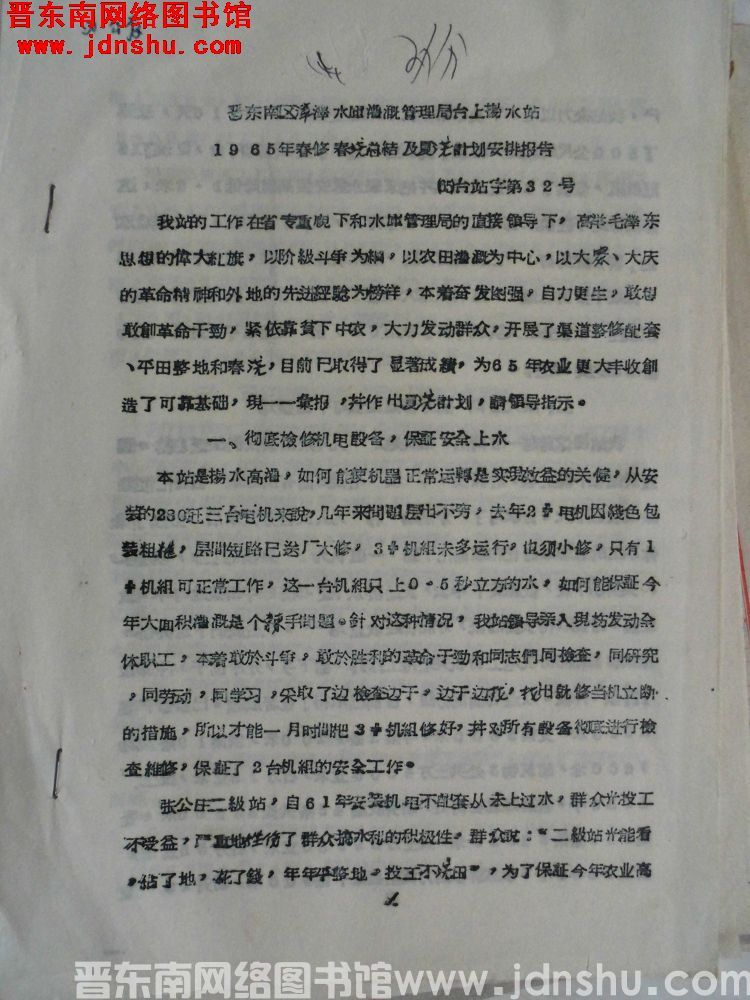 晋东南网络图书馆
www.jdnshu.com
晋东南区漳泽水庫灌溉管理局台上揚水站
1965年春修春浇总結及夏浇計划安排报告
(65)台站字第32号
我站的工作在省专重視下和水庫管理局的直接領导下，高举毛泽东
思想的偉大紅旗，以阶級斗爭为綱，以农田灌溉为中心，以大寨、大庆
的革命精神和外地的先进經驗为榜样，本着奋发图强，自力更生，敢想
敢創革命干勁，紧依靠貧下中农，大力发动群众，开展了渠道整修配套
、平田整地和春浇，目前已取得了显著成績，为65年农业更大丰收創
造了可靠基础，現一一彙报，并作出夏浇計划，請領导指示。
一、彻底檢修机电設备，保証安全上水
本站是揚水高灌，如何能使机器正常运轉是实現效益的关键，从安
装的230瓩三台电机来說，几年来問題层出不穷，去年2#电机因綫色包
装粗糙，层間短路已送厂大修，3#机組未多运行，也須小修，只有1
#机組可正常工作，这一台机組只上0.5秒立方的水，如何能保証今
年大面积灌溉是个棘手問題。針对这种情况，我站領导深入現坊发动全
体职工，本着敢於斗爭，敢於胜利的革命干勁和同志們同檢查，同研究
，同劳动，同学习，采取了边檢查边干，边干边找，找出就修当机立断
的措施，所以才能一月时間把3#机組修好，并对所有設备彻底进行檢
查維修，保証了2台机組的安全工作。
张公庄二級站，自61年安装机电不配套从未上过水，群众光投工
不受益，严重地挫伤了群众搞水利的积极性。群众說："二級站光能看
，佔了地，花了錢，年年平整地，投工不浇田"，为了保証今年农业高
1
晋东南网络图书馆www.jdnshu.com